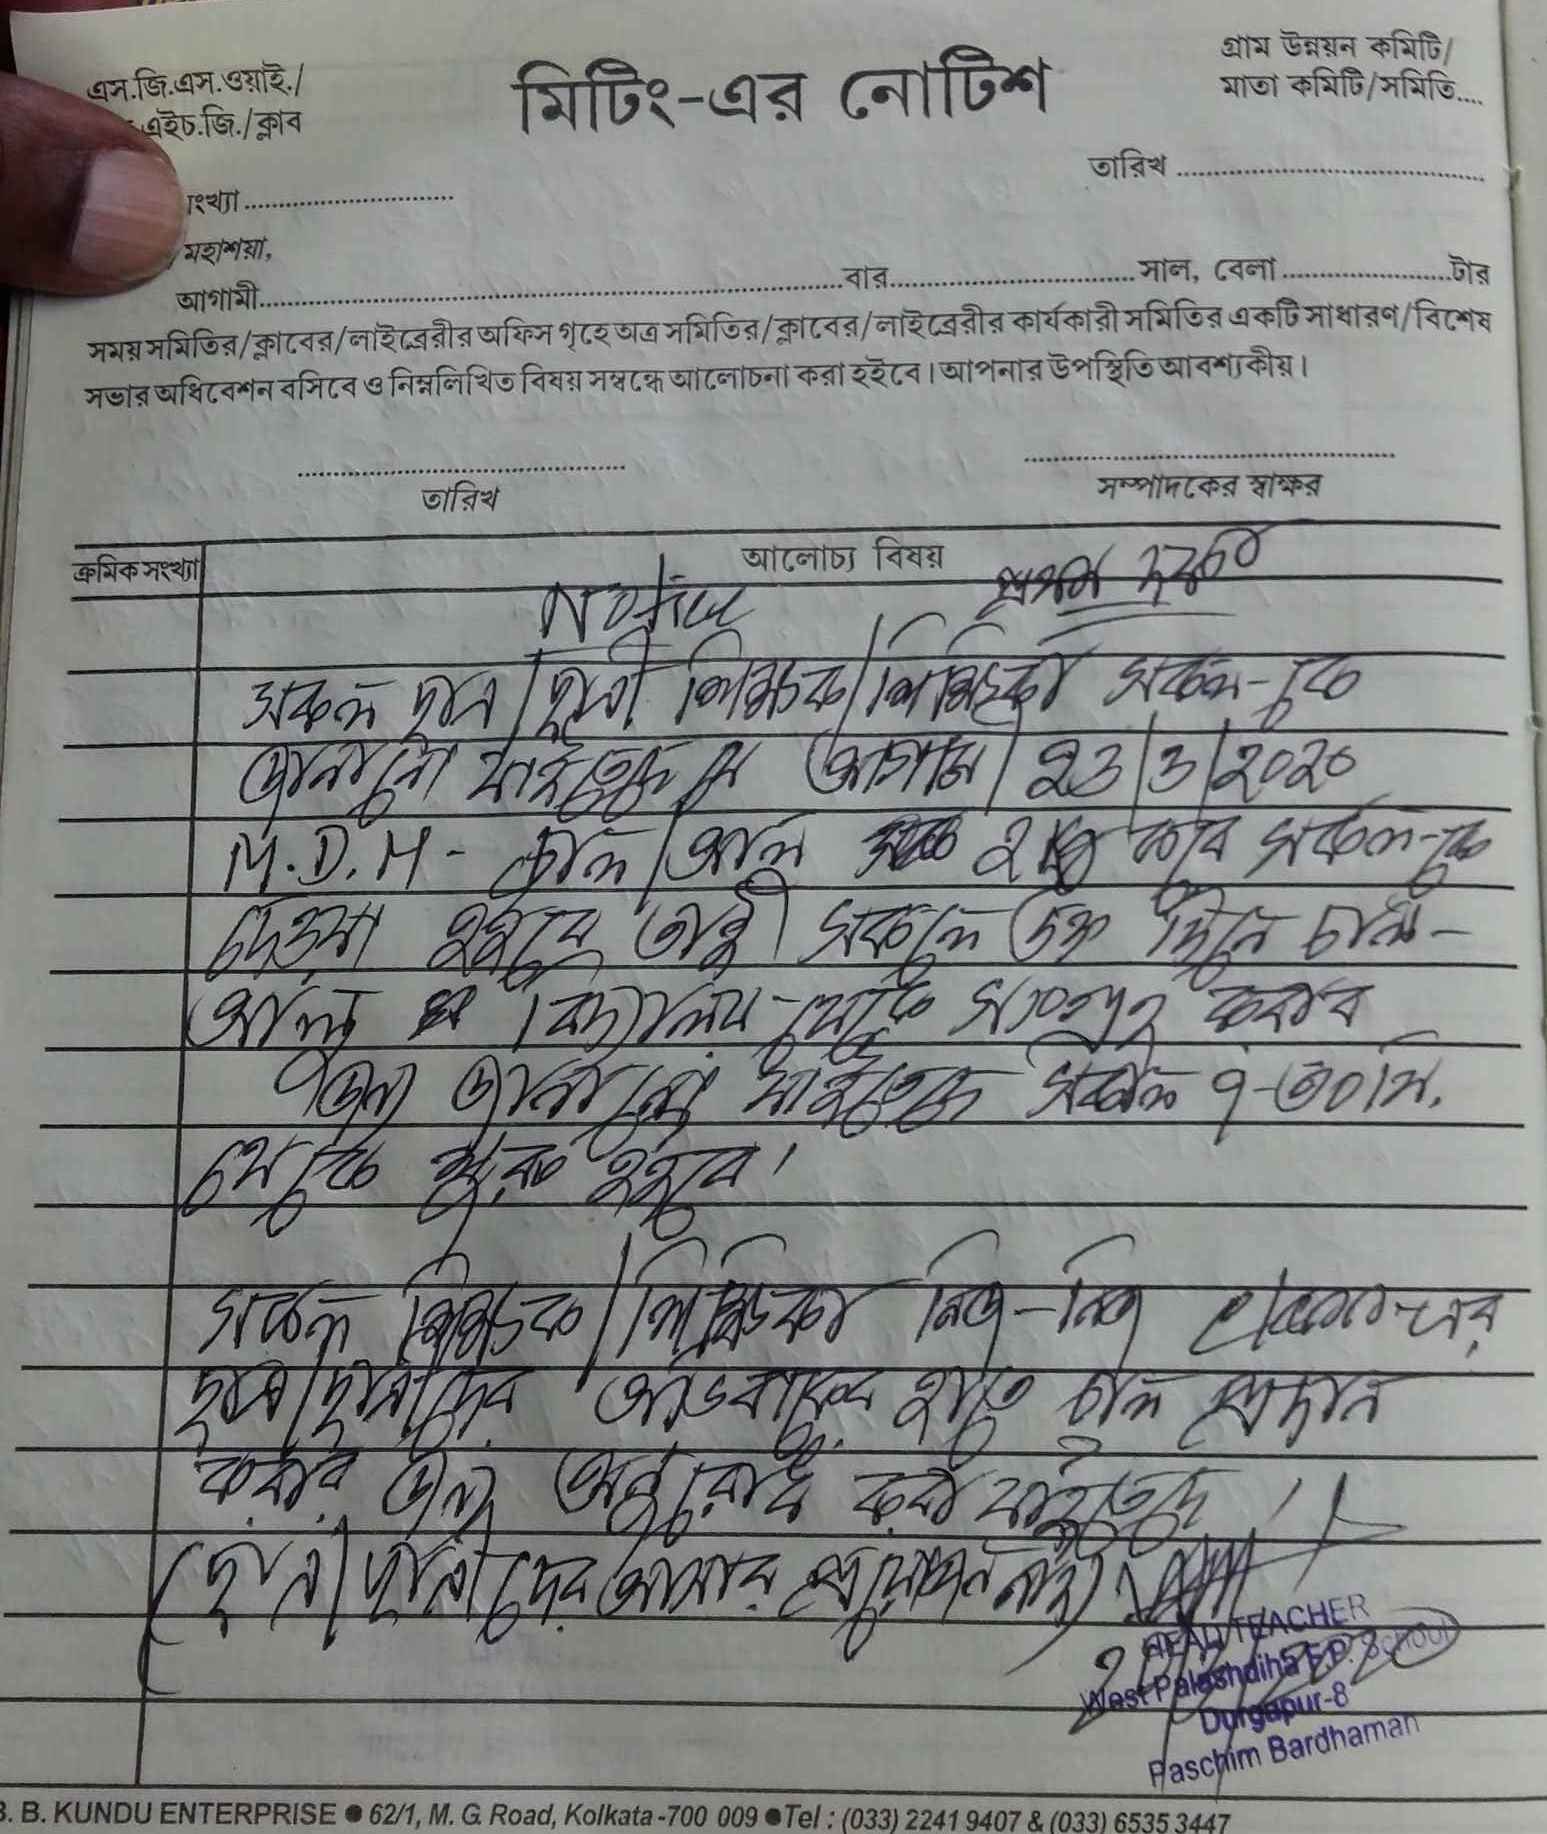 এস.জি.এস.ওয়াই./
এইচ.জি./ক্লাব
মিটিং-এর নোটিশ
গ্রাম উন্নয়ন কমিটি/
মাতা কমিটি/সমিতি....
তারিখ
ংখ্যা
মহাশয়া,
আগামী.......বার.......সাল, বেলা.......টার
সময় সমিতির/ক্লাবের/লাইব্রেরীর অফিস গৃহে অত্র সমিতির/ক্লাবের/লাইব্রেরীর কার্যকারী সমিতির একটি সাধারণ/বিশেষ
সভার অধিবেশন বসিবে ও নিম্নলিখিত বিষয় সম্বন্ধে আলোচনা করা হইবে। আপনার উপস্থিতি আবশ্যকীয়।
তারিখ
সম্পাদকের স্বাক্ষর
ক্রমিক সংখ্যা
আলোচ্য বিষয়
Notice
প্রথম দফা
সকল ছাত্র/ছাত্রী শিক্ষক/শিক্ষিকা সকল-কে
জানানো যাইতেছে যে আগামী 23/3/2020
M.D.M - চাল/আলু 2 kg করে সকল-কে
দেওয়া হইবে তাই সকলে উক্ত দিনে চাল-
আলু বিদ্যালয়-থেকে সংগ্রহ করার
জন্য জানানো যাইতেছে সকাল ৭-৩০মি.
থেকে শুরু হইবে।
সকল শিক্ষক/শিক্ষিকা নিজ-নিজ class-এর
ছাত্র/ছাত্রীদের অভিবাবকের হাতে চাল প্রদান
করার জন্য অনুরোধ করা যাইতেছে।
(ছাত্র/ছাত্রীদের আসার প্রয়োজন নাই)
HEAD TEACHER
West Palashdiha F.P. School
Durgapur-8
Paschim Bardhaman
B. B. KUNDU ENTERPRISE ● 62/1, M. G. Road, Kolkata -700 009 ● Tel : (033) 2241 9407 & (033) 6535 3447